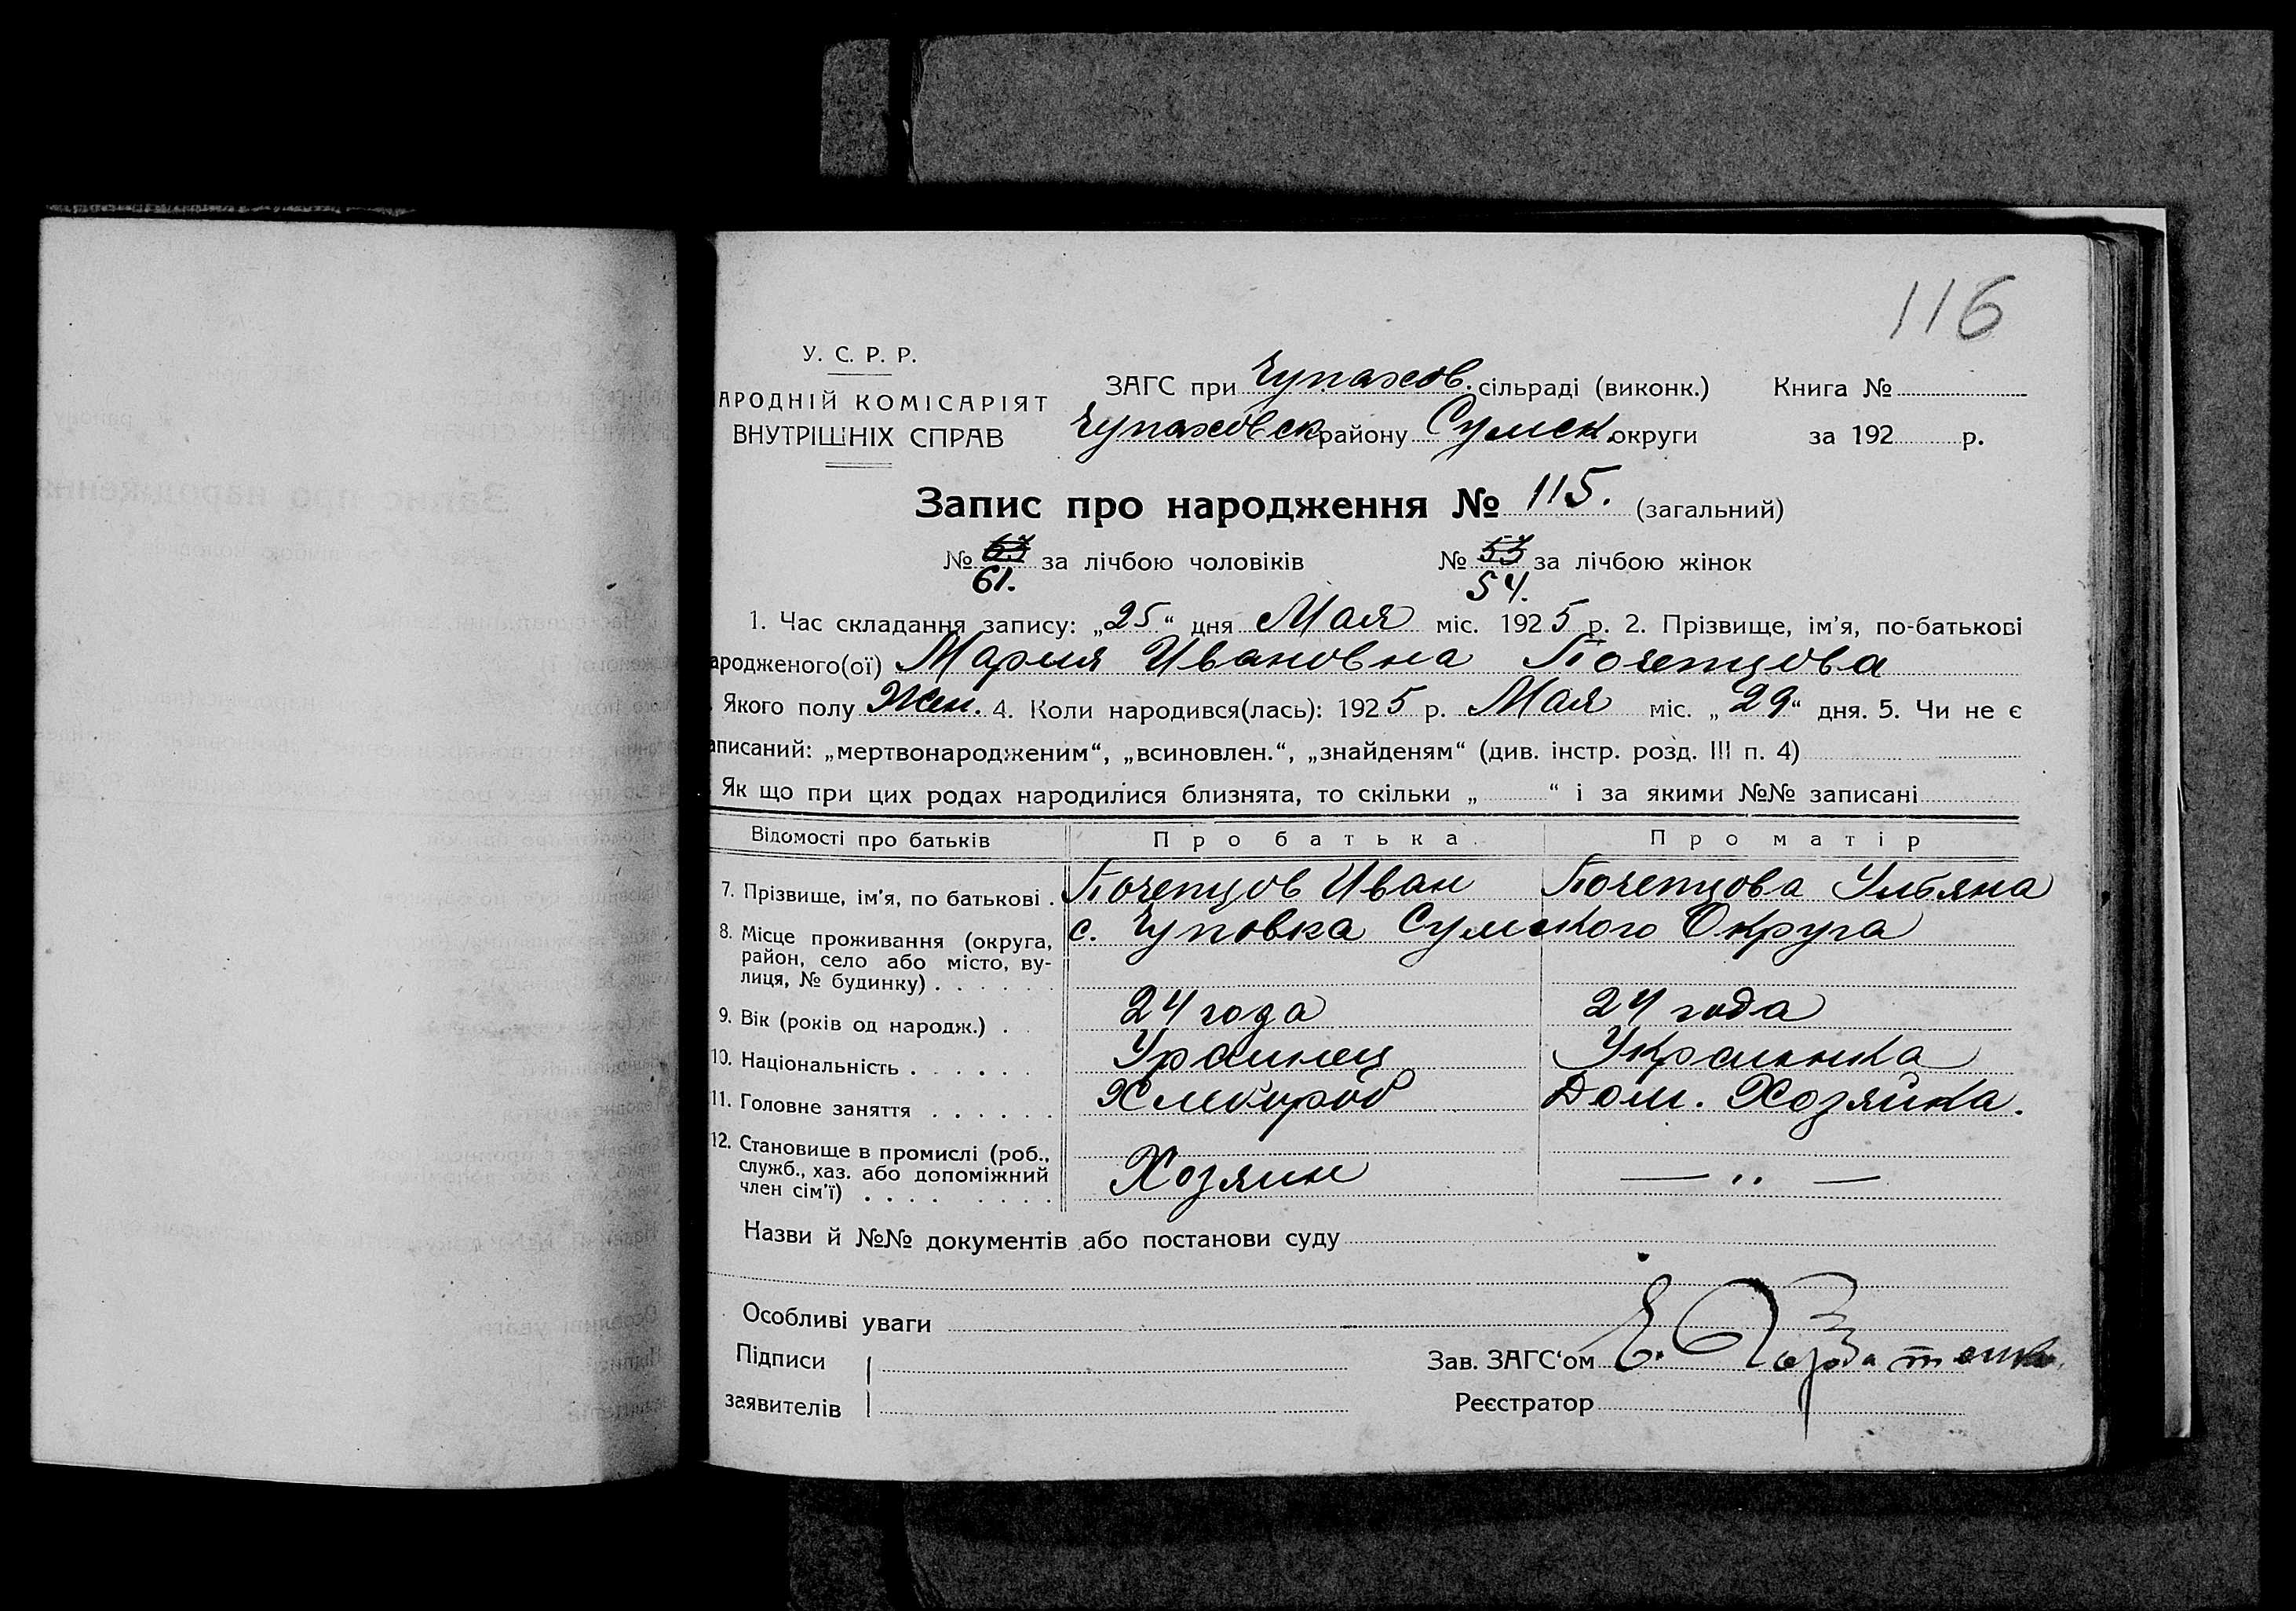 116
У. С. Р. Р.
АРОДНІЙ КОМІСАРІЯТ
ВНУТРІШНІХ СПРАВ
ЗАГС при Чупахов. сільраді (виконк.) Книга №
Чупаховск району Сумск округи за 192 р.
Запис про народження № 115. (загальний)
№ 63 за лічбою чоловіків № 53 за лічбою жінок
61. 54.
1. Час складання запису: „25“ дня Мая міс. 1925 р. 2. Прізвище, ім’я, по-батькові
ародженого(ої) Мария Ивановна Почепцова
Якого полу Жен. 4. Коли народився(лась): 1925 р. Мая міс. „29“ дня. 5. Чи не є
аписаний: „мертвонародженим“, „всиновлен.“, „знайденям“ (див. інстр. розд. III п. 4)
Як що при цих родах народилися близнята, то скільки „ “ і за якими №№ записані
Відомості про батьків Про батька. Про матір
7. Прізвище, ім’я, по батькові . Почепцов Иван Почепцова Ульяна
8. Місце проживання (округа, район, село або місто, ву-лиця, № будинку) . . . . . . с. Чуповка Сумского Округа
9. Вік (років од народж.) . 24 года 24 года
10. Національність . . . . . .Ураинец Украинка
11. Головне заняття . . . . . . Хлебороб Дом. Хозяйка.
12. Становище в промислі (роб., служб., хаз. або допоміжний член сім’ї) . . . . . . . . . Хозяин — „ —
Назви й №№ документів або постанови суду
Особливі уваги
Підписи
заявителів
Зав. ЗАГС‘ом Е.
Реєстратор